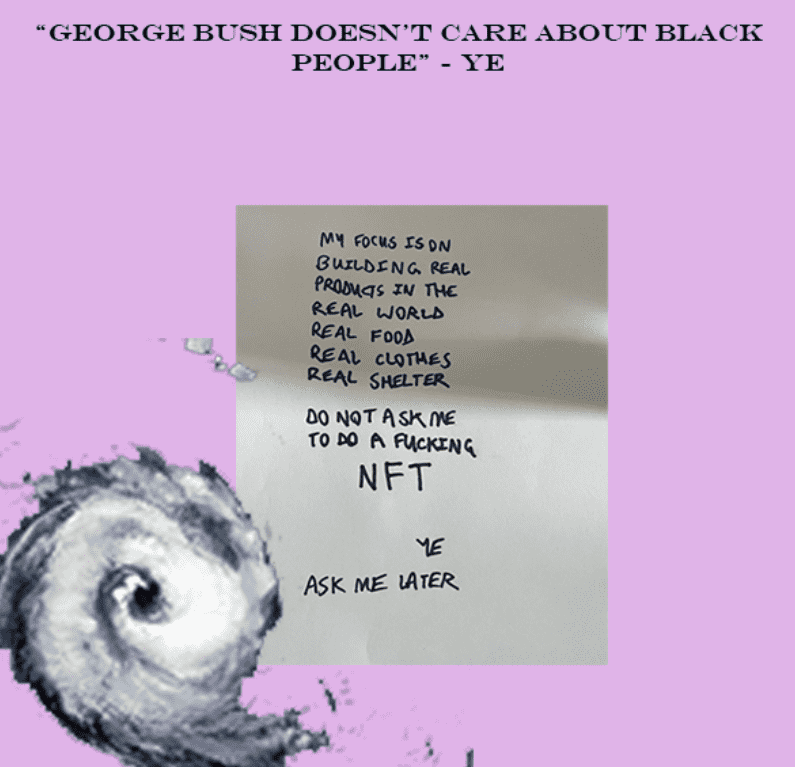 “GEORGE BUSH DOESN’T CARE ABOUT BLACK
PEOPLE” - YE
MY FOCUS IS ON
BUILDING REAL
PRODUCTS IN THE
REAL WORLD
REAL FOOD
REAL CLOTHES
REAL SHELTER
DO NOT ASK ME
TO DO A FUCKING
NFT
YE
ASK ME LATER